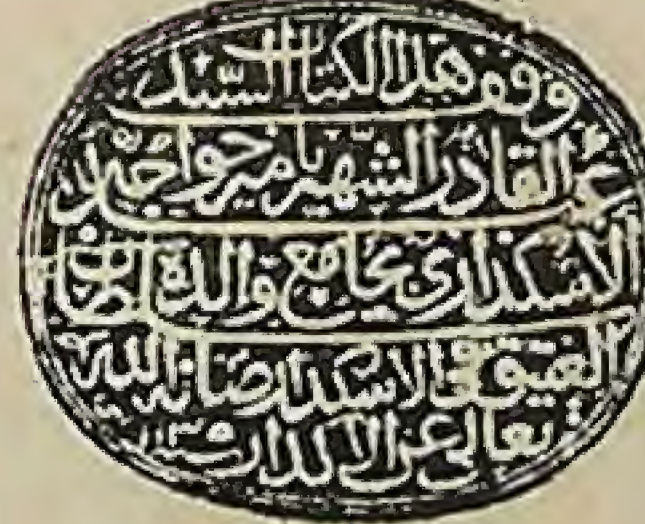 وقف هذا الكتاب السيد
عبد القادر الشهير بامير خواجه
الاسكداري بجامع والدة
العتيق الاسكدار صانه الله
تعالى عن الاكدار